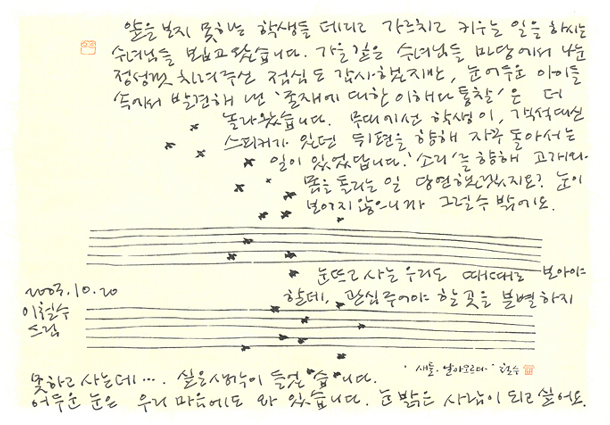 앞을 보지 못하는 학생들 데리고 가르치고 키우는 일을 하시는
수녀님들 뵙고 왔습니다. 가을 깊은 수녀님들 마당에서 나눈
정성껏 차려주신 점심도 감사했지만, 눈 어두운 아이들
속에서 발견해 낸 '존재에 대한 이해나 통찰'은 더
놀라웠습니다. 무대에 선 학생이, 객석 대신
스피커가 있던 뒤편을 향해 자꾸 돌아서는
일이 있었답니다. '소리'를 향해 고개와
몸을 돌리는 일 당연했겠지요? 눈이
보이지 않으니까 그럴 수 밖에요.
눈뜨고 사는 우리도 때때로 보아야
할 데, 관심 주어야 할 곳을 분별하지
2003.10.20
이철수
드림
'새들·날아오르다.' 철수
못하고 사는데···. 싶은 생각이 들었습니다.
어두운 눈은 우리 마음에도 와 있습니다. 눈 밝은 사람이 되고 싶어요.